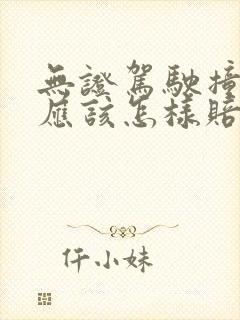 無證駕駛撞
應該怎樣賠
仟小妹